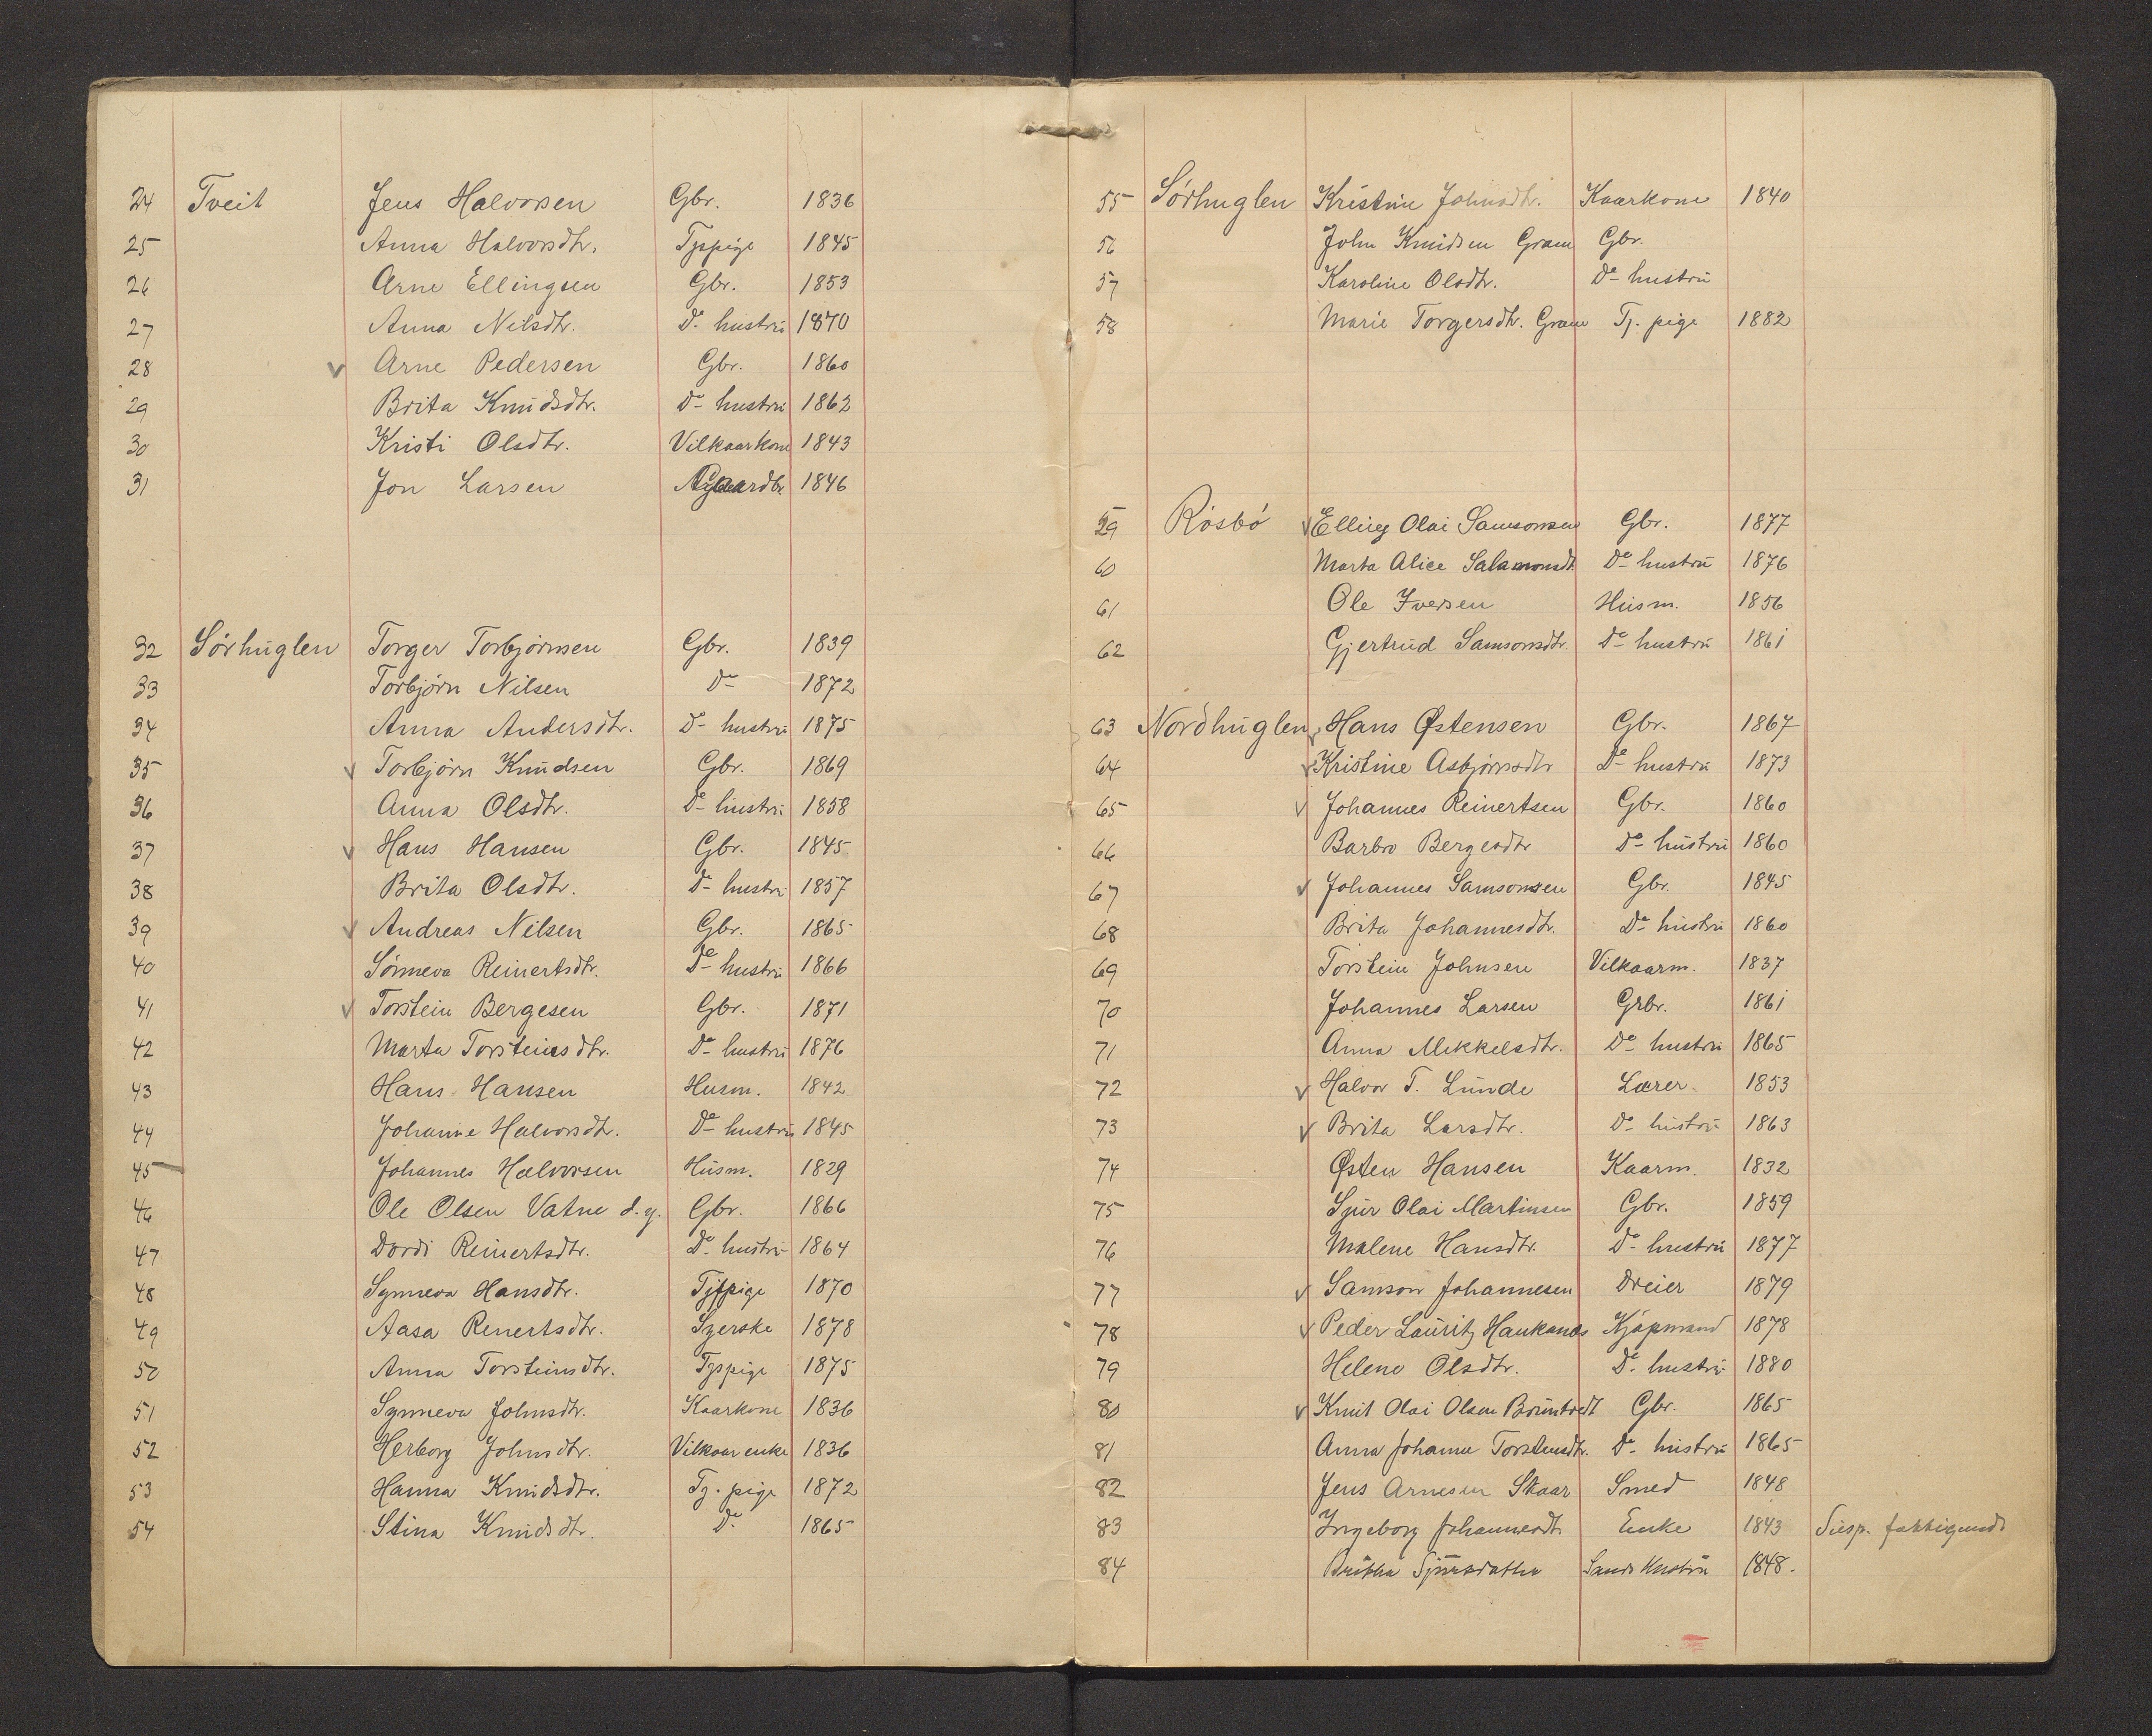 24 Tveit Jens Halvorsen Gbr. 1836
25 Anna Halvorsdtr. Tjspige 1845
26 Arne Ellingsen Gbr. 1853
27 Anna Nilsdtr. Do hustru 1870
28 v Arne Pedersen Gbr. 1860
29 Brita Knudsdtr. Do hustru 1862
30 Kristi Olsdtr. Vilkaarkone 1843
31 Jon Larsen 1846
32 Sørhuglen Torger Torbjørnsen Gbr. 1839
33 Torbjørn Nilsen Do 1872
34 Anna Andersdtr. Do hustru 1875
35 v Torbjørn Knudsen Gbr. 1869
36 Anna Olsdtr. Do hustru 1858
37 v Hans Hansen Gbr. 1845
38 Brita Olsdtr. Do hustru 1857
39 v Andreas Nilsen Gbr. 1865
40 Sønneva Reinertsdtr. Do hustru 1866
41 v Torstein Bergesen Gbr. 1871
42 Marta Torsteinsdtr. Do hustru 1876
43 Hans Hansen Husm. 1842
44 Johanne Halvorsdtr. Do hustru 1845
45 Johannes Halvorsen Husm. 1829
46 Ole Olsen Vatne d.y. Gbr. 1866
47 Dordi Reinertsdtr. Do hustru 1864
48 Synneva Hansdtr. Tjspige 1870
49 Aasa Renertsdtr. Syerske 1878
50 Anna Torsteinsdtr. Tjspige 1875
51 Synneva Johnsdtr. Kaarkone 1836
52 Herborg Johnsdtr. Vilkaarenke 1836
53 Hanna Knudsdtr. Tj. pige 1872
54 Stina Knudsdtr. Do 1865
55 Sørhuglen Kristine Johnsdtr. Kaarkone 1840
56 John Knudsen Gram Gbr.
57 Karoline Olsdtr. Do hustru
58 Marie Torgersdtr. Gram Tj. pige 1882
59 Røsbø v Elling Olai Samsonsen Gbr. 1877
60 Marta Alice Salamonsdt. Do hustru 1876
61 Ole Iversen Husm. 1856
62 Gjertrud Samsonsdtr. Do hustru 1861
63 Nordhuglen v Hans Østensen Gbr. 1867
64 v Kristine Asbjørnsdtr Do hustru 1873
65 v Johannes Reinertsen Gbr. 1860
66 Barbro Bergesdtr Do hustru 1860
67 v Johannes Samsonsen Gbr. 1845
68 Brita Johannesdtr. Do hustru 1860
69 Torstein Johnsen Vilkaarm. 1837
70 Johannes Larsen Grbr. 1861
71 Anna Mikkelsdtr. Do hustru 1865
72 v Halvor T. Lunde Lærer 1853
73 v Brita Larsdtr. Do hustru 1863
74 Østen Hansen Kaarm. 1832
75 Sjur Olai Martinsen Gbr. 1859
76 Malene Hansdtr. Do hustru 1877
77 v Samson Johannesen Dreier 1879
78 v Peder Lauritz Haukanes Kjøpmand 1878
79 Helene Olsdtr. Do hustru 1880
80 v Knut Olai Olsen Bruntvedt Gbr. 1865
81 Anna Johanne Torsteinsdtr. Do hustru 1865
82 Jens Arnesen Skaar Smed 1848
83 Ingeborg Johannesdt. Enke 1843 Susp. fattigunds
84 Britha Sjursdatter hustru 1848.